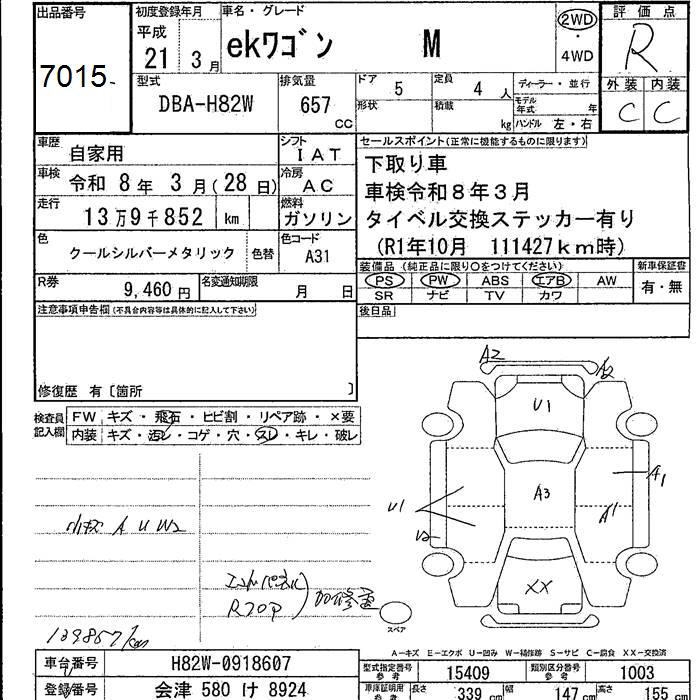 出品番号
7015-
初度登録年月
平成
21 3月
車名・グレード
ekワゴン M
2WD
・
4WD
評価点
R
型式
DBA-H82W
排気量
657
CC
ドア 5
定員 4 人
ディーラー・並行
形状
積載 kg
モデル年式 年
ハンドル 左・右
外装 内装
C C
車歴 自家用
シフト IAT
車検 令和 8年 3月(28日)
冷房 AC
走行 13万9千852 km
燃料 ガソリン
色 クールシルバーメタリック 色替
色コード A31
R券 9,460円
名変通知期限 月 日
セールスポイント(正常に機能するものに限ります)
下取り車
車検令和8年3月
タイベル交換ステッカー有り
(R1年10月 111427km時)
装備品 (純正品に限り○をつけてください)
PS PW ABS エアB AW
SR ナビ TV カワ
新車保証書
有・無
後日品
注意事項申告欄(不具合内容等は具体的に記入して下さい)
修復歴 有〔箇所 〕
検査員
記入欄
FW キズ・飛石・ヒビ割・リペア跡・×要
内装 キズ・汚レ・コゲ・穴・スレ・キレ・破レ
A2
A2
U1
A3
A1
A1
U1
U2
XX
小キズ A U W2
エンドパネル
R フロア
加修歴
スペア
139857km
A-キズ E-エクボ U-凹み W-補修跡 S-サビ C-腐食 XX-交換済
車台番号 H82W-0918607
登録番号 会津 580 け 8924
型式指定番号
参考
15409
類別区分番号
参考
1003
車庫証明用
参考
長さ 339 cm
幅 147 cm
高さ 155 cm